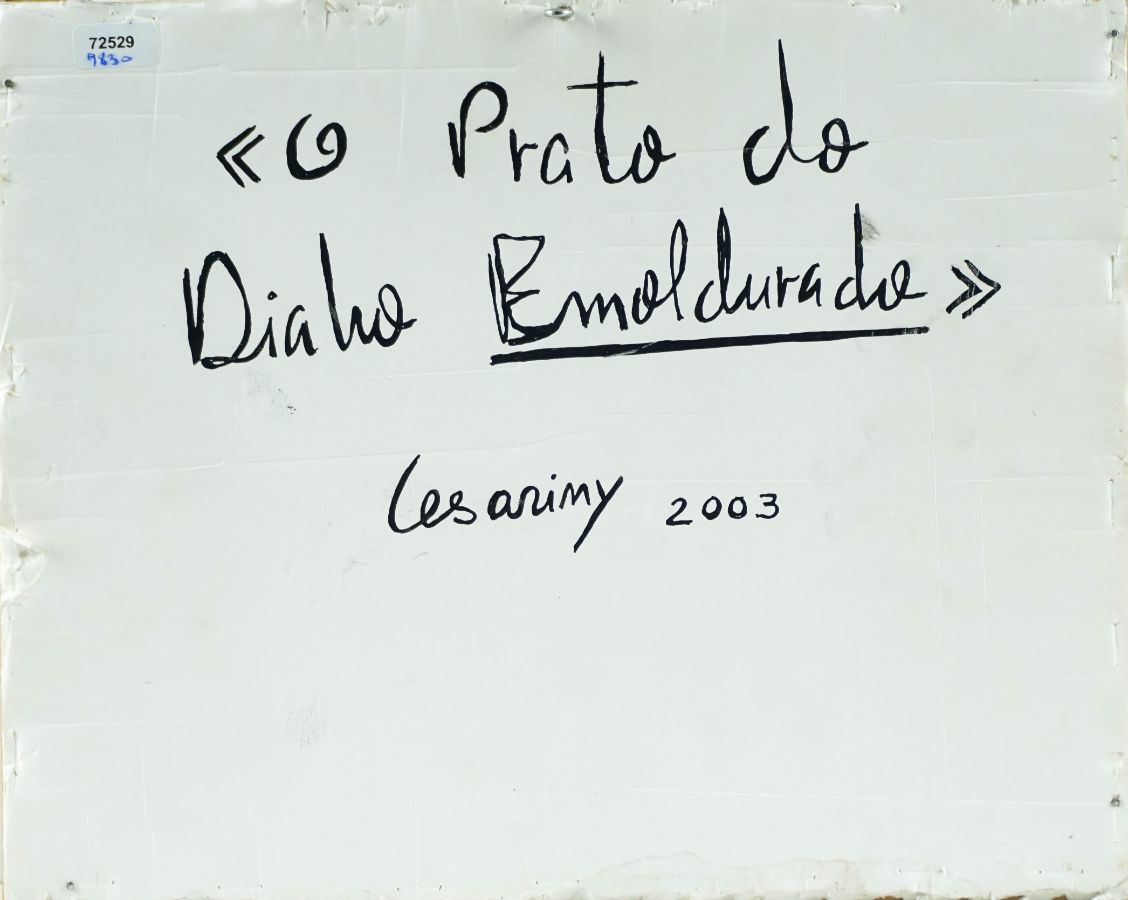 72529
9830
«O Prato do
Diabo Emoldurado»
Cesariny 2003